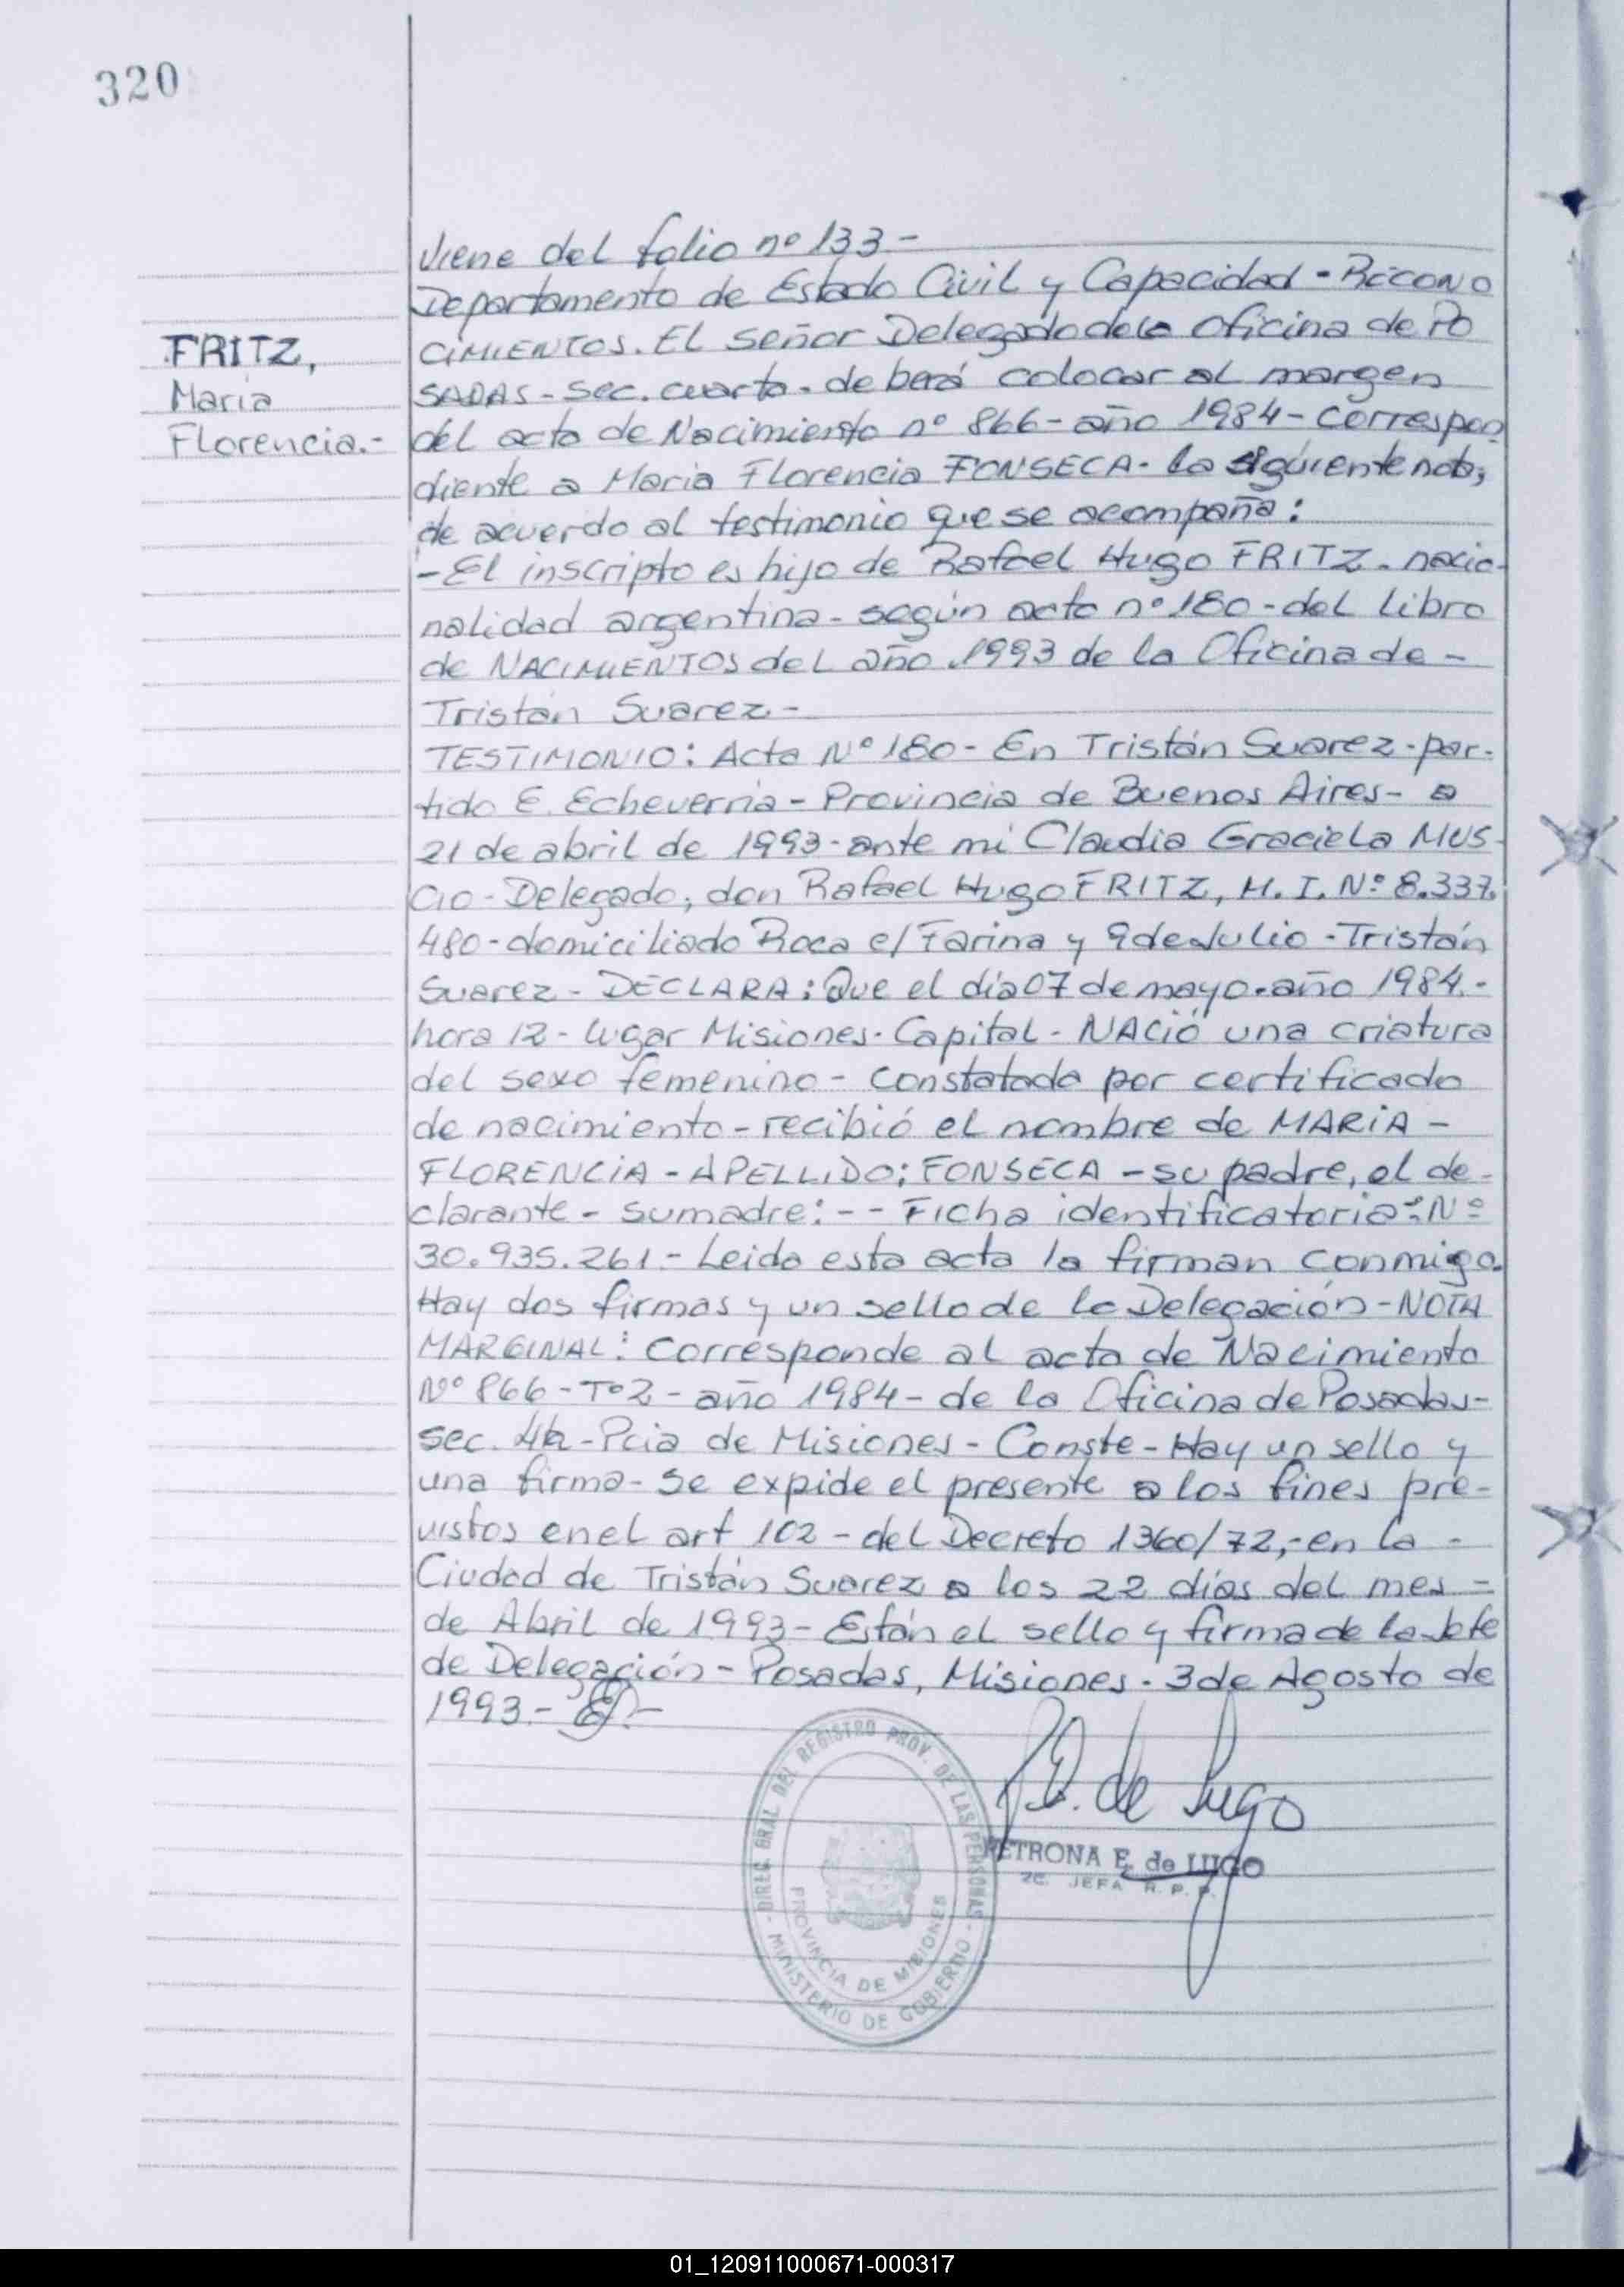 320
FRITZ,
Maria
Florencia.-
Viene del folio nº 133-
Departamento de Estado Civil y Capacidad - RECONO
CIMIENTOS. El Señor Delegado de la Oficina de PO
SADAS - Sec. cuarta - deberá colocar al margen
del acta de Nacimiento nº 866 - año 1984 - correspon
diente a Maria Florencia FONSECA - la siguiente nota,
de acuerdo al testimonio que se acompaña:
- El inscripto es hijo de Rafael Hugo FRITZ - nacio-
nalidad argentina - según acta nº 180 - del libro
de NACIMIENTOS del año 1993 de la Oficina de -
Tristán Suarez -
TESTIMONIO: Acta Nº 180 - En Tristán Suarez - par-
tido E. Echeverria - Provincia de Buenos Aires - a
21 de abril de 1993 - ante mi Claudia Graciela MUS-
CIO - Delegado, don Rafael Hugo FRITZ, M. I. Nº 8.337.
480 - domiciliado Roca e/ Farina y 9 de Julio - Tristán
Suarez - DECLARA: Que el día 07 de mayo - año 1984 -
hora 12 - lugar Misiones - Capital - NACió una criatura
del sexo femenino - constatada por certificado
de nacimiento - recibió el nombre de MARIA -
FLORENCIA - APELLIDO: FONSECA - su padre, el de-
clarante - su madre: - - Ficha identificatoria: Nº
30.935.261 - Leida esta acta la firman conmigo.
Hay dos firmas y un sello de la Delegación - NOTA
MARGINAL: Corresponde al acta de Nacimiento
Nº 866 - Tº 2 - año 1984 - de la Oficina de Posadas -
sec. 4ta - Pcia de Misiones - Conste - Hay un sello y
una firma - Se expide el presente a los fines pre-
vistos en el art 102 - del Decreto 1360/72, - en la -
Ciudad de Tristán Suarez a los 22 días del mes -
de Abril de 1993 - Están el sello y firma de la Jefe
de Delegación - Posadas, Misiones - 3 de Agosto de
1993.-
DIREC. GRAL. DEL REGISTRO PROV. DE LAS PERSONAS
MINISTERIO DE GOBIERNO
PROVINCIA DE MISIONES
P.E. de Lugo
PETRONA E. de LUGO
JEFA R. P. P.
01_120911000671-000317